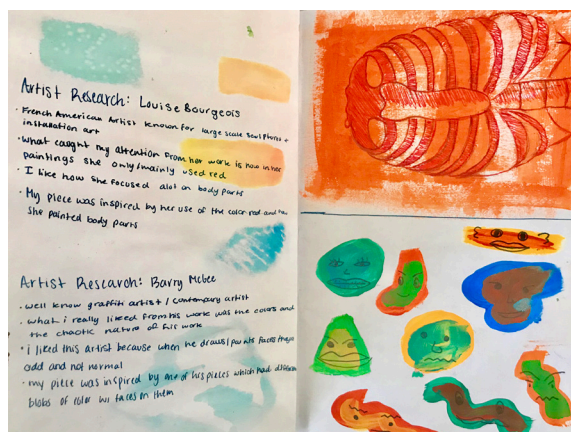 Artist Research: Louise Bourgeois
• French American Artist known for large scale sculptures +
installation art
• What caught my attention from her work is how in her
paintings she only/mainly used red
• I like how she focused alot on body parts
• My piece was inspired by her use of the color red and how
she painted body parts
Artist Research: Barry Mcgee
• well know graffiti artist / contempary artist
• what i really liked from his work was the colors and
the chaotic nature of his work
• i liked this artist because when he draws/paints faces they're
odd and not normal
• my piece was inspired by one of his pieces which had different
blobs of color w/ faces on them